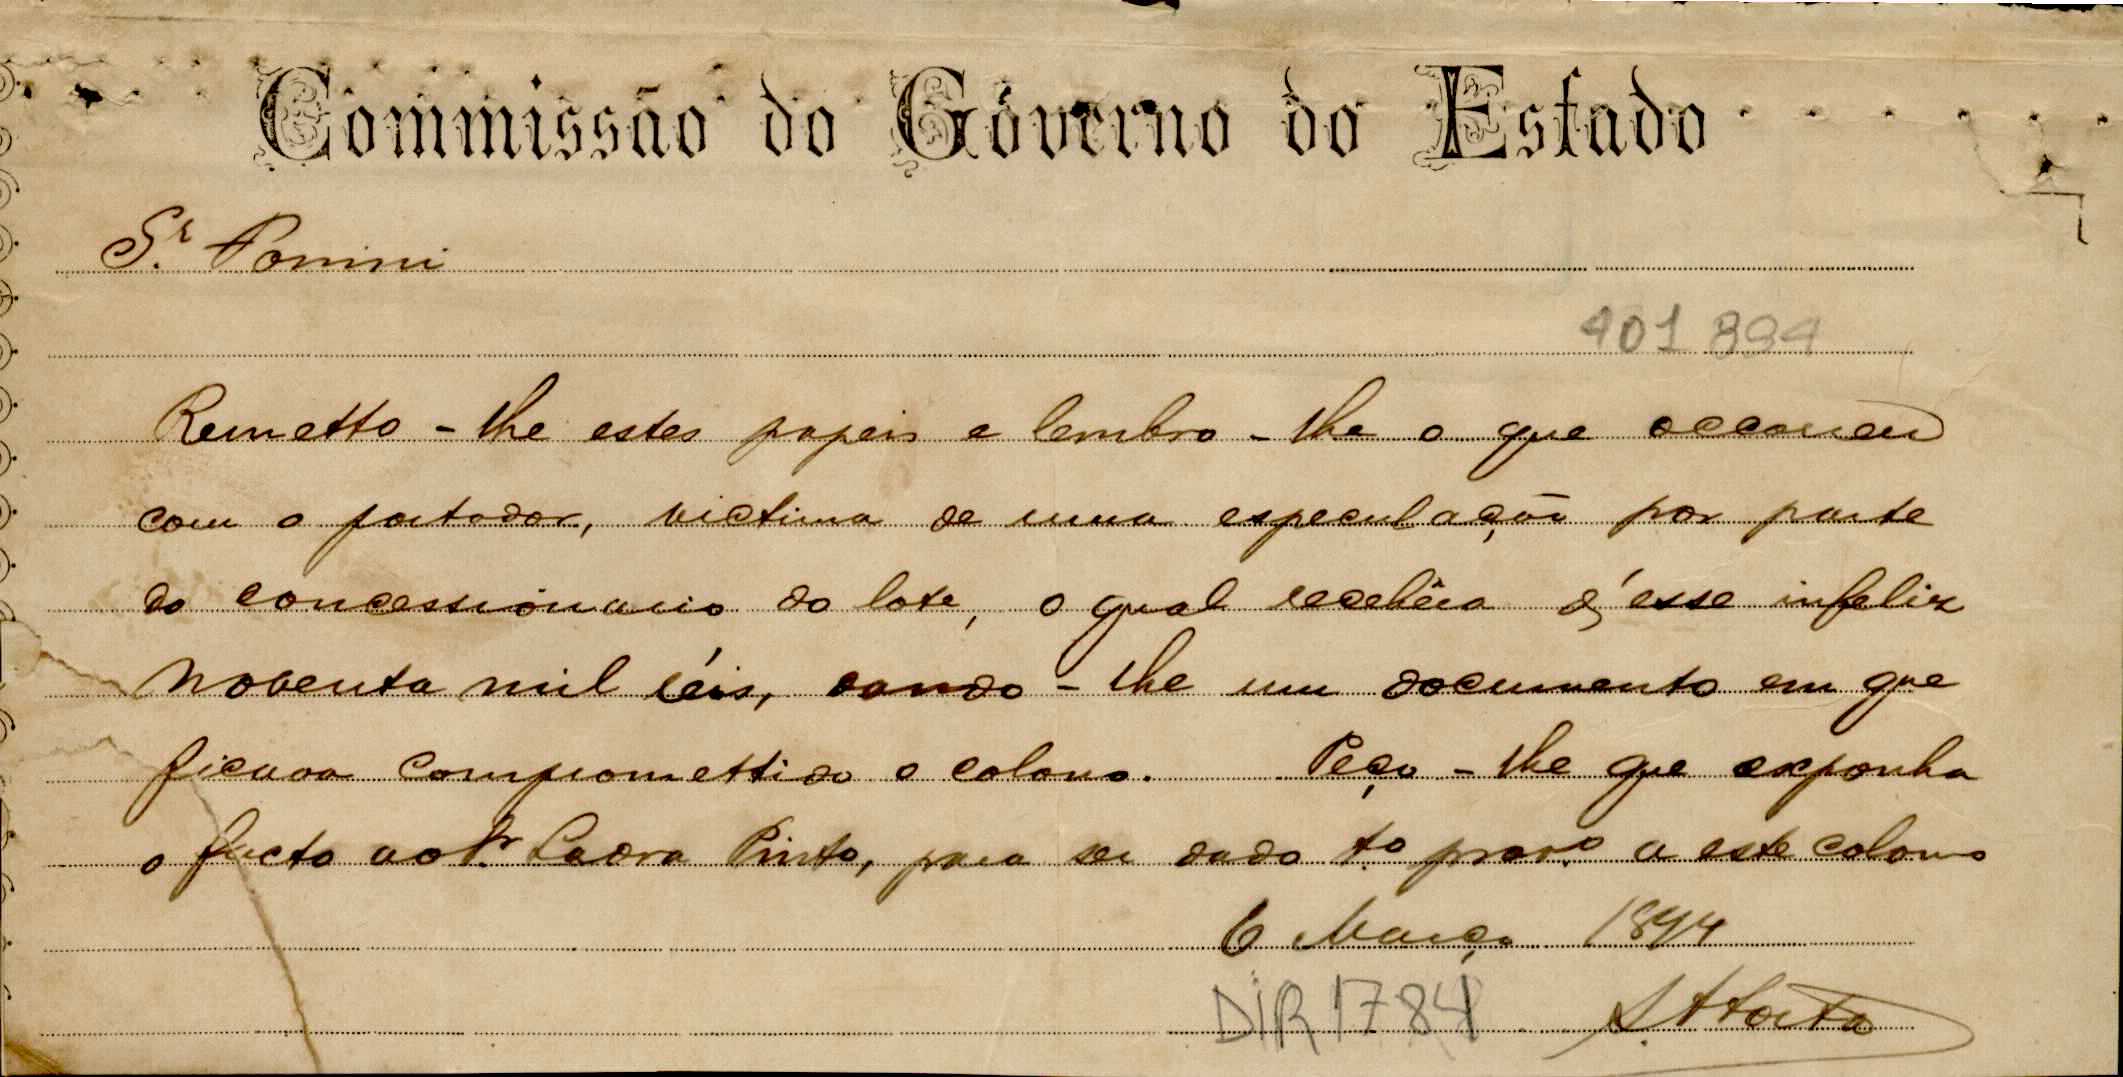 Commissão do Governo do Estado
Sr. Ponini
401 894
Remetto-lhe estes papeis e lembro-lhe o que occorreu
com o portador, victima de uma especulação por parte
do concessionario do lote, o qual recebêra d'esse infeliz
noventa mil réis, dando-lhe um documento em que
ficava compromettido o colono. Peço-lhe que exponha
o facto ao Dr Ladra Pinto, para ser dado to. prov.o a este colono
6 Março 1894
DIR 1784
S. Horta